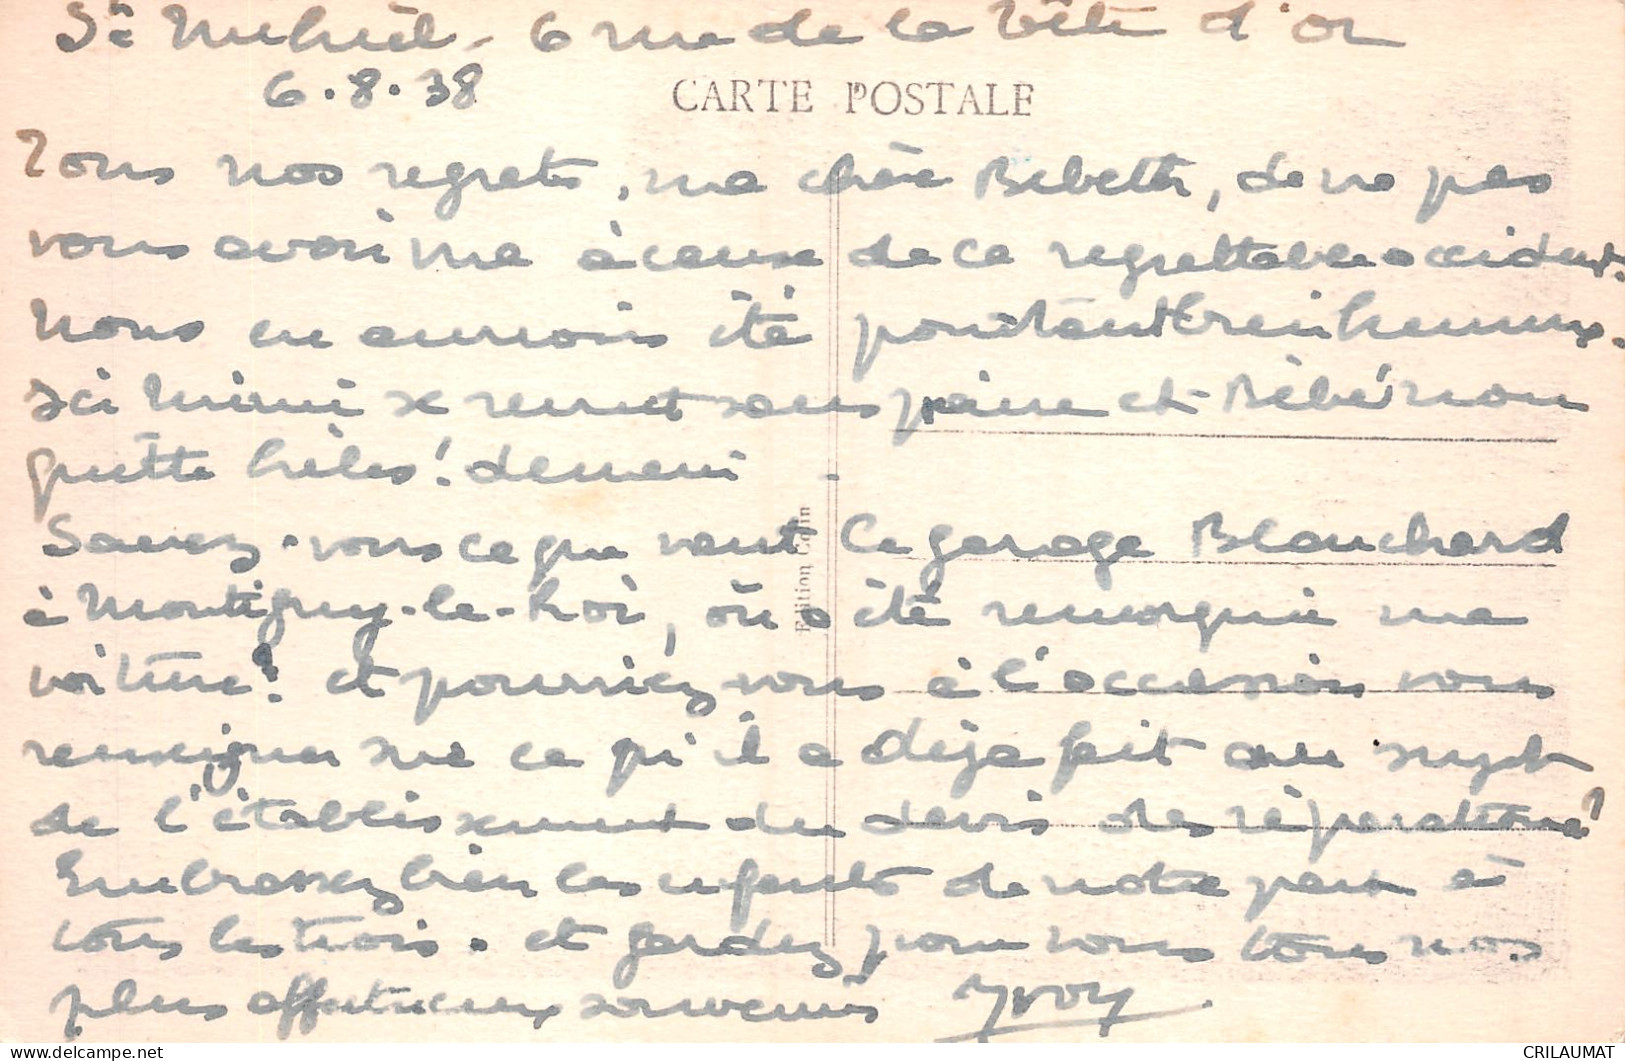 St Mihiel - 6 rue de la Tête d'or
6.8.38
CARTE POSTALE
Tous nos regrets, ma chère Bebeth, de ne pas
vous avoir vue à cause de ce regrettable accident.
Nous en aurions été pourtant bien heureux.
Ici Mimi se remet sans peine et Bébé nous
quitte hélas! demain -
Savez-vous ce que vaut le garage Blanchard
à Montigny-le-Roi, où a été remorquée ma
voiture? et pourriez vous à l'occasion vous
renseigner sur ce qu'il a déjà fait au sujet
de l'établissement du devis des réparations?
Embrassez bien les enfants de notre part à
tous les trois. et gardez pour vous tous nos
plus affectueux souvenirs Yvoy
Edition Colin
CRILAUMAT